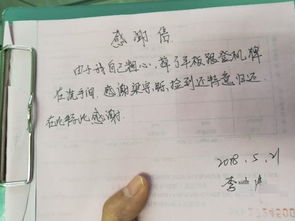 感谢信
由于我自己粗心，掉了平板跟登机牌
在洗手间，感谢梁宗斯，捡到还特意归还
在此特此感谢.
2018.5.21
李